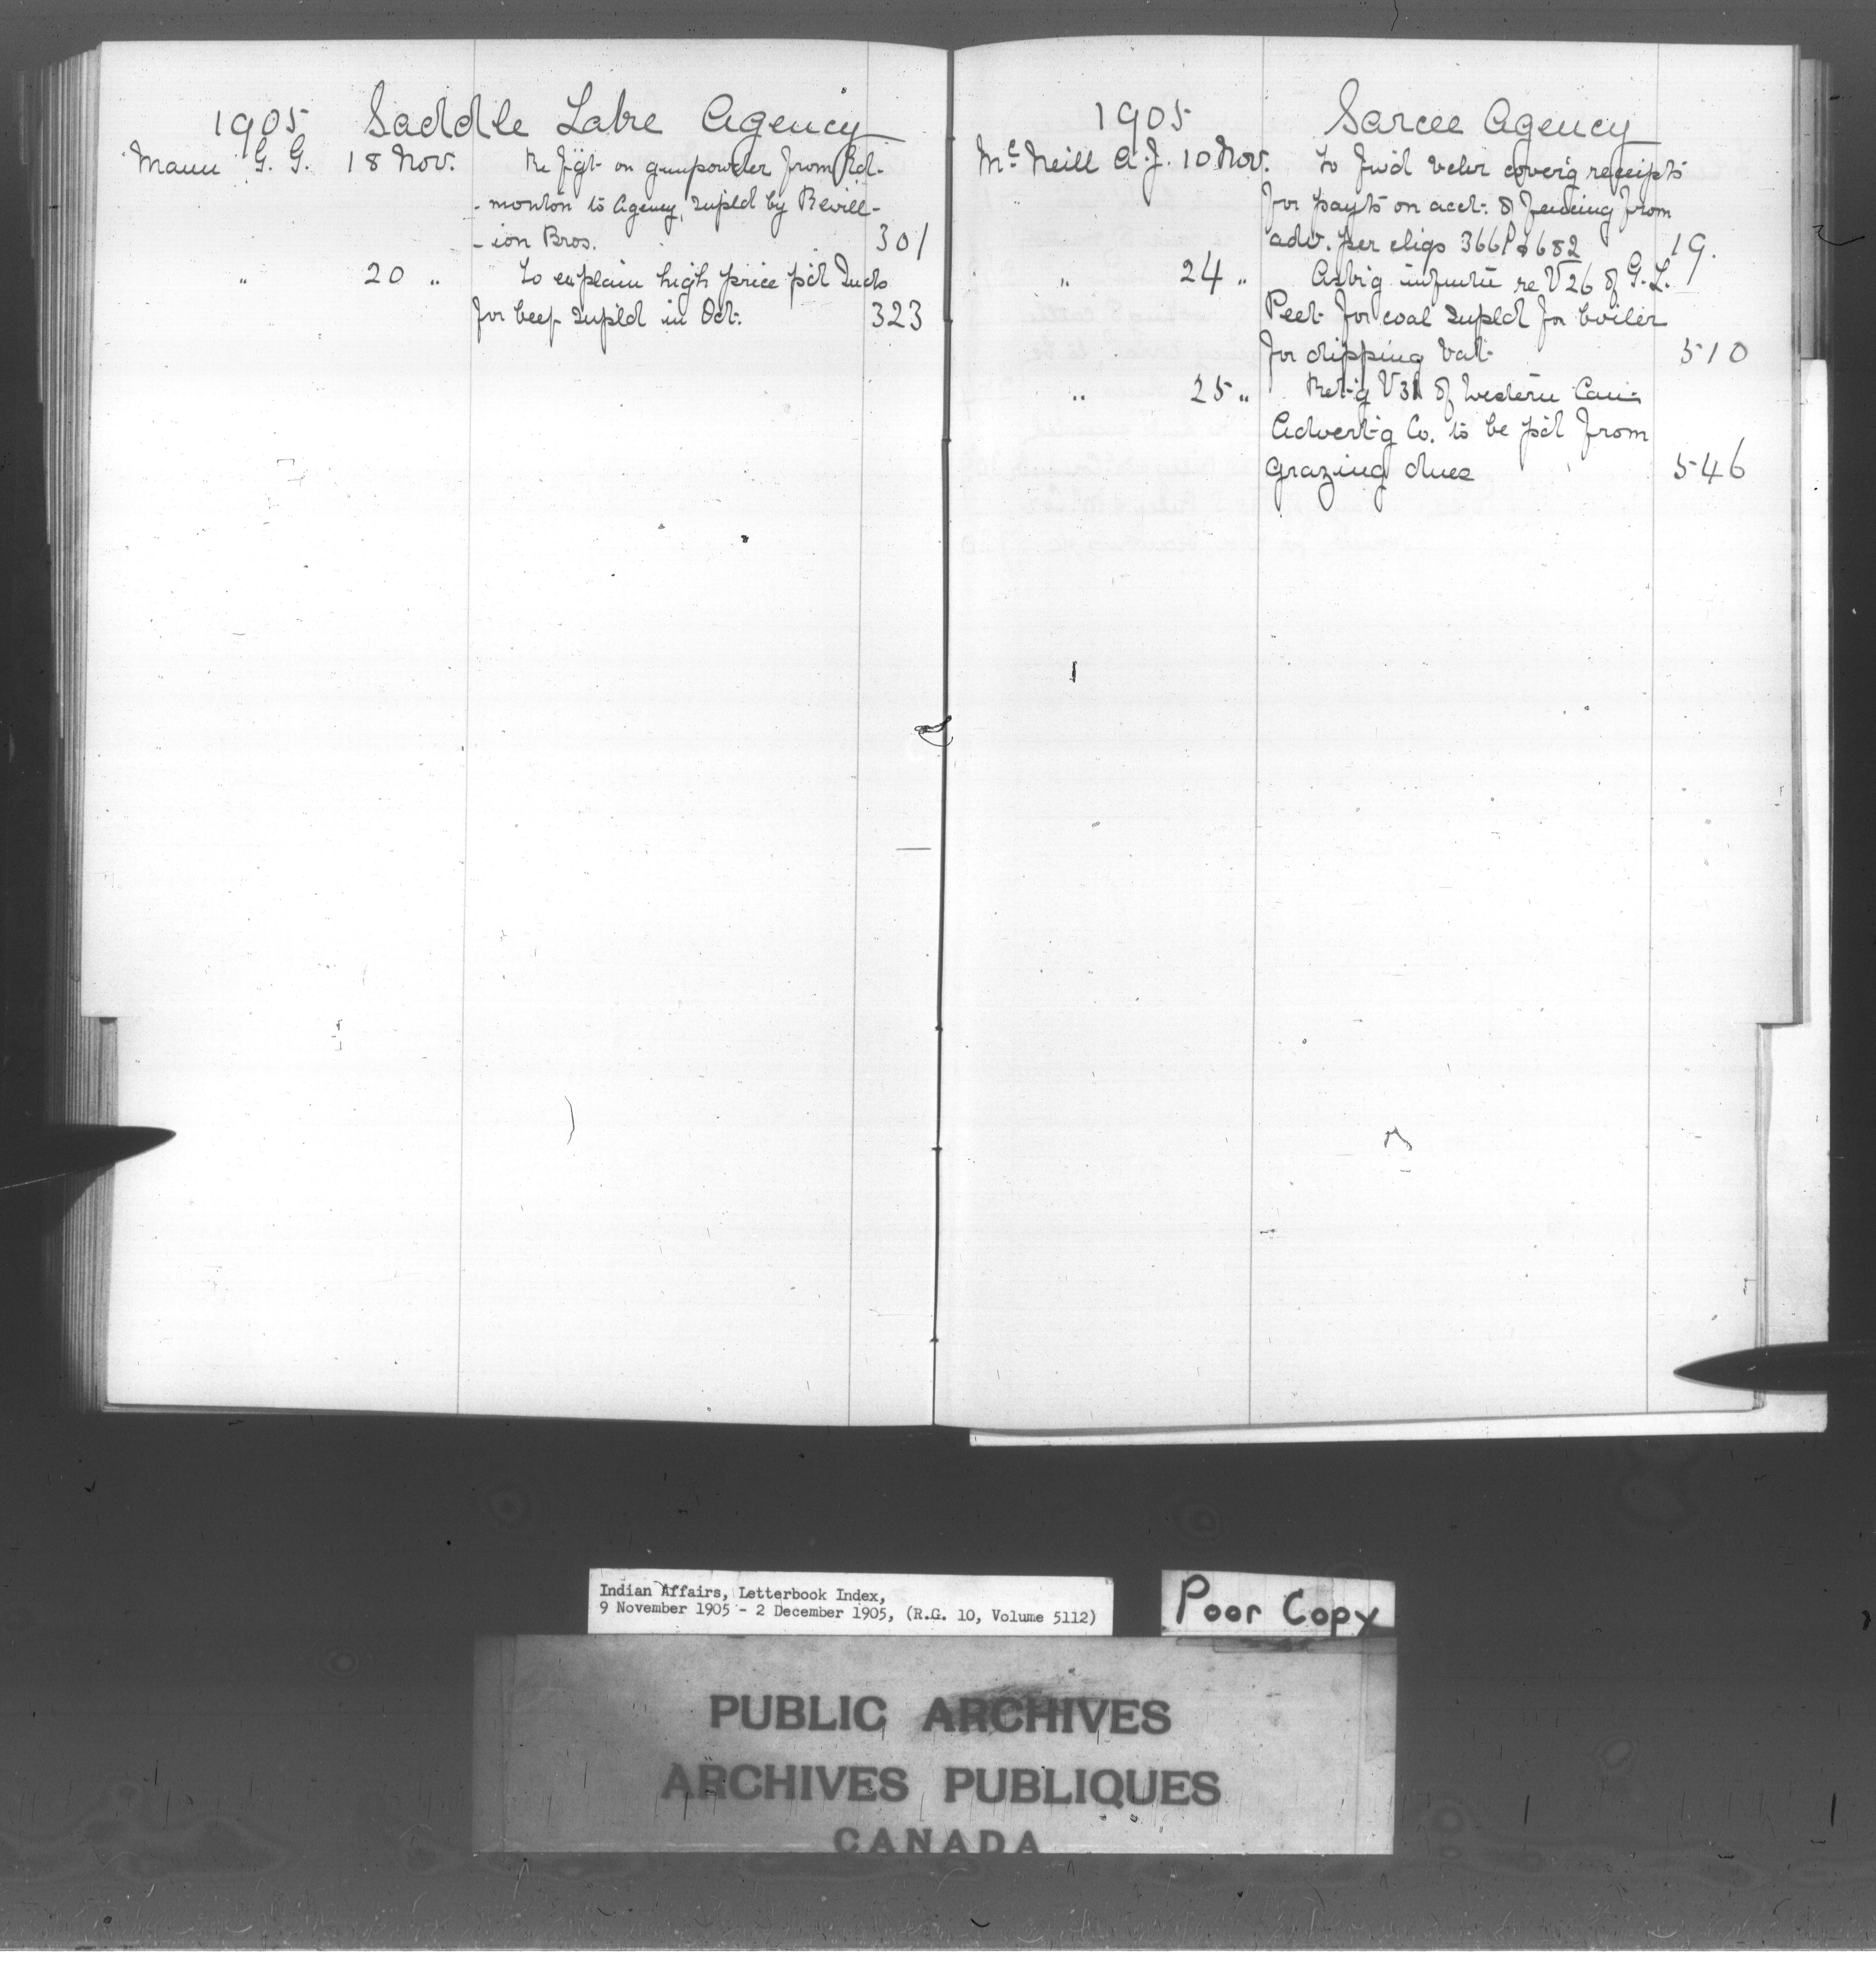 1905 Saddle Lake Agency
Mann G. G. 18 Nov. Re f'gt on gunpowder from Ed-
-monton to Agency, supld by Revill-
-ion Bros. 301
" 20 " To explain high price p'd Inds
for beef supld in Oct. 323
1905 Sarcee Agency
McNeill A. J. 10 Nov. To fwd vchr coverg receipts
for payts on acct. of fencing from
adv. per chqs 366 & 682 19.
" 24 " Askg re V26 of G. L.
Peet for coal supld for boiler
for dipping vat 510
" 25 " Ret-g V31 of Western Can-
Advert-g Co. to be p'd from
grazing dues 546
Indian Affairs, Letterbook Index,
9 November 1905 - 2 December 1905, (R.G. 10, Volume 5112)
Poor Copy
PUBLIC ARCHIVES
ARCHIVES PUBLIQUES
CANADA